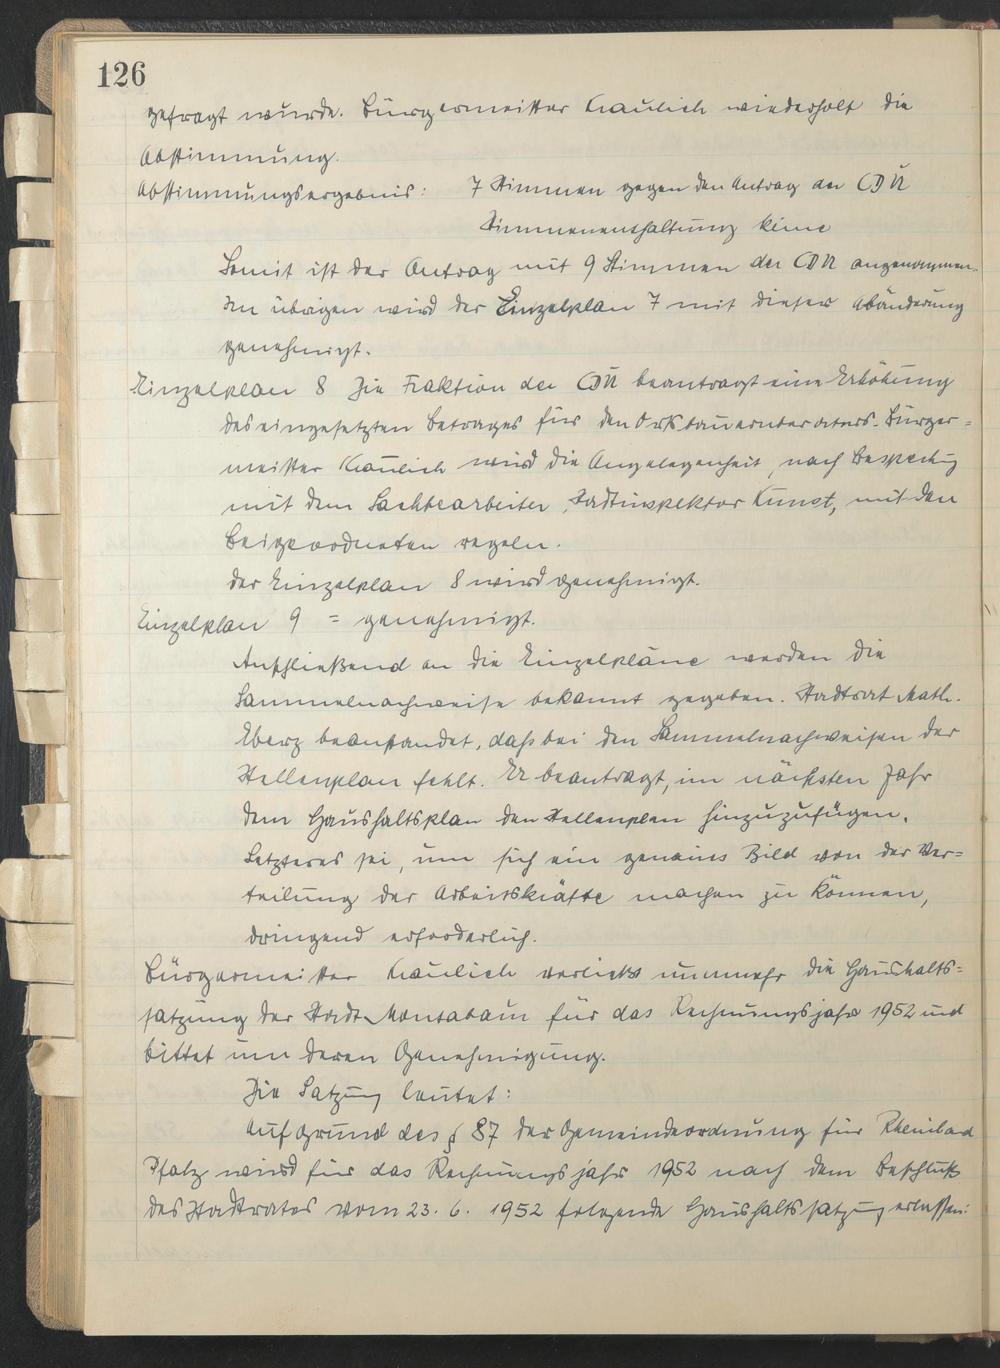 126
gefragt wurde. Bürgermeister Kaulich wiederholt die
Abstimmung.
Abstimmungsergebnis: 7 Stimmen gegen den Antrag der CDU
Stimmenenthaltung keine
Somit ist der Antrag mit 9 Stimmen der CDU angenommen.
Im übrigen wird der Einzelplan 7 mit dieser Abänderung
genehmigt.
Einzelplan 8 Die Fraktion der CDU beantragt eine Erhöhung
des eingesetzten Betrages für den Ortsbauernberaters. Bürger=
meister Kaulich wird die Angelegenheit, nach Besprechg
mit dem Sachbearbeiter, Stadtinspektor Kunst, mit den
Beigeordneten regeln.
Der Einzelplan 8 wird genehmigt.
Einzelplan 9 = genehmigt.
Anschließend an die Einzelpläne werden die
Sammelnachweise bekannt gegeben. Stadtrat Math.
Eberz beanstandet, daß bei den Sammelnachweisen der
Stellenplan fehlt. Er beantragt, im nächsten Jahr
dem Haushaltsplan den Stellenplan hinzuzufügen.
Letzteres sei, um sich ein genaues Bild von der Ver=
teilung der Arbeitskräfte machen zu können,
dringend erforderlich.
Bürgermeister Kaulich verliest nunmehr die Haushalts=
satzung der Stadt Montabaur für das Rechnungsjahr 1952 und
bittet um deren Genehmigung.
Die Satzung lautet:
Auf Grund des § 87 der Gemeindeordnung für Rheinland
Pfalz wird für das Rechnungsjahr 1952 nach dem Beschluß
des Stadtrates vom 23. 6. 1952 folgende Haushaltssatzung erlassen: